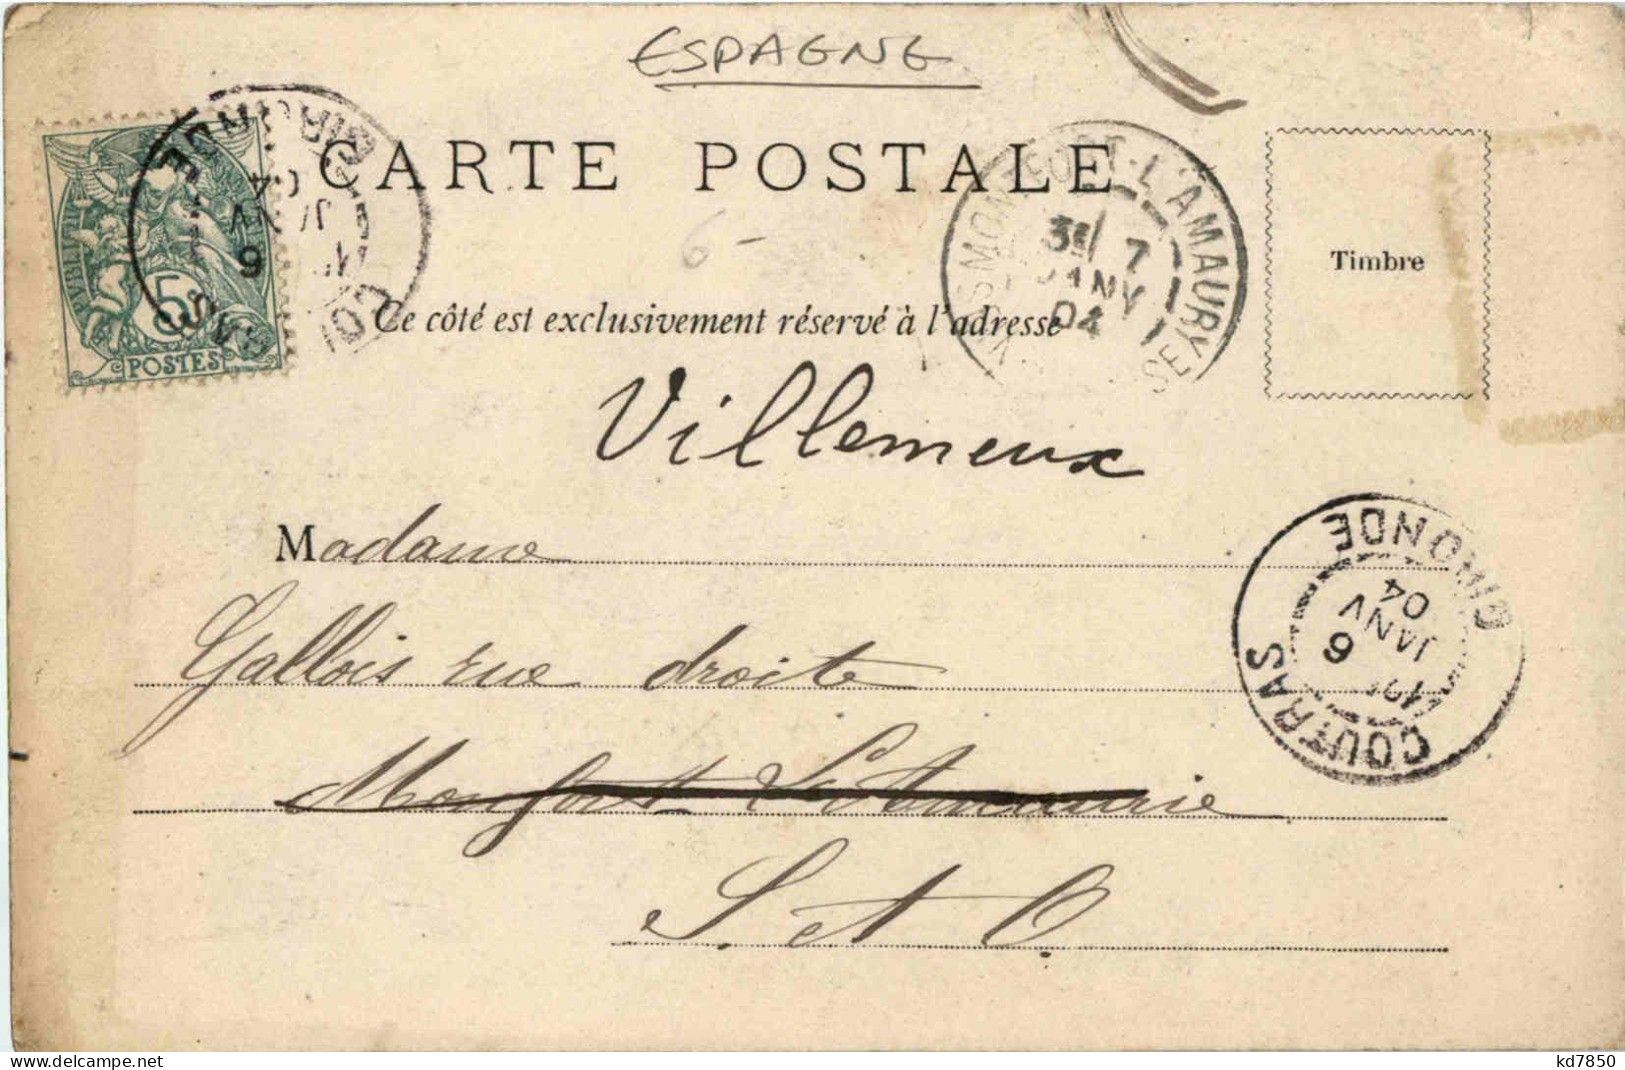 ESPAGNE
CARTE POSTALE
6-
RÉPUBLIQUE
5c
POSTES
COUTRAS GIRONDE
6
JANV
04
MONTFORT-L'AMAURY
3E / 7
JANV
04
Timbre
Ce côté est exclusivement réservé à l'adresse
Villemeux
Madame
Gallois rue droite
Monfort L'Amaurie
S. et O.
COUTRAS GIRONDE
6
JANV
04
www.delcampe.net
kd7850